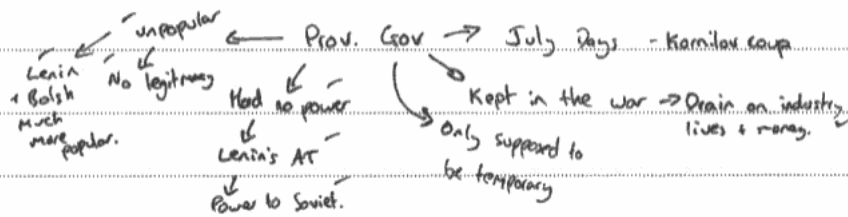 unpopular ← Prov. Gov → July Days - Kornilov coup
Lenin + Bolsh Much more popular.
No legitimacy
Had no power
Lenin's AT
Power to Soviet.
Only supposed to be temporary
Kept in the war → Drain on industry, lives + money.